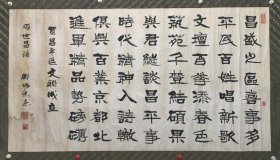 昌盛之區喜事多
平民百姓唱新歌
文壇百香添春色
苑千結碩果
與君談昌平事
時代精神入轍
俱興百業京都北
進軍精品勢磅礴
賀昌平區文聯成立
世昌詩